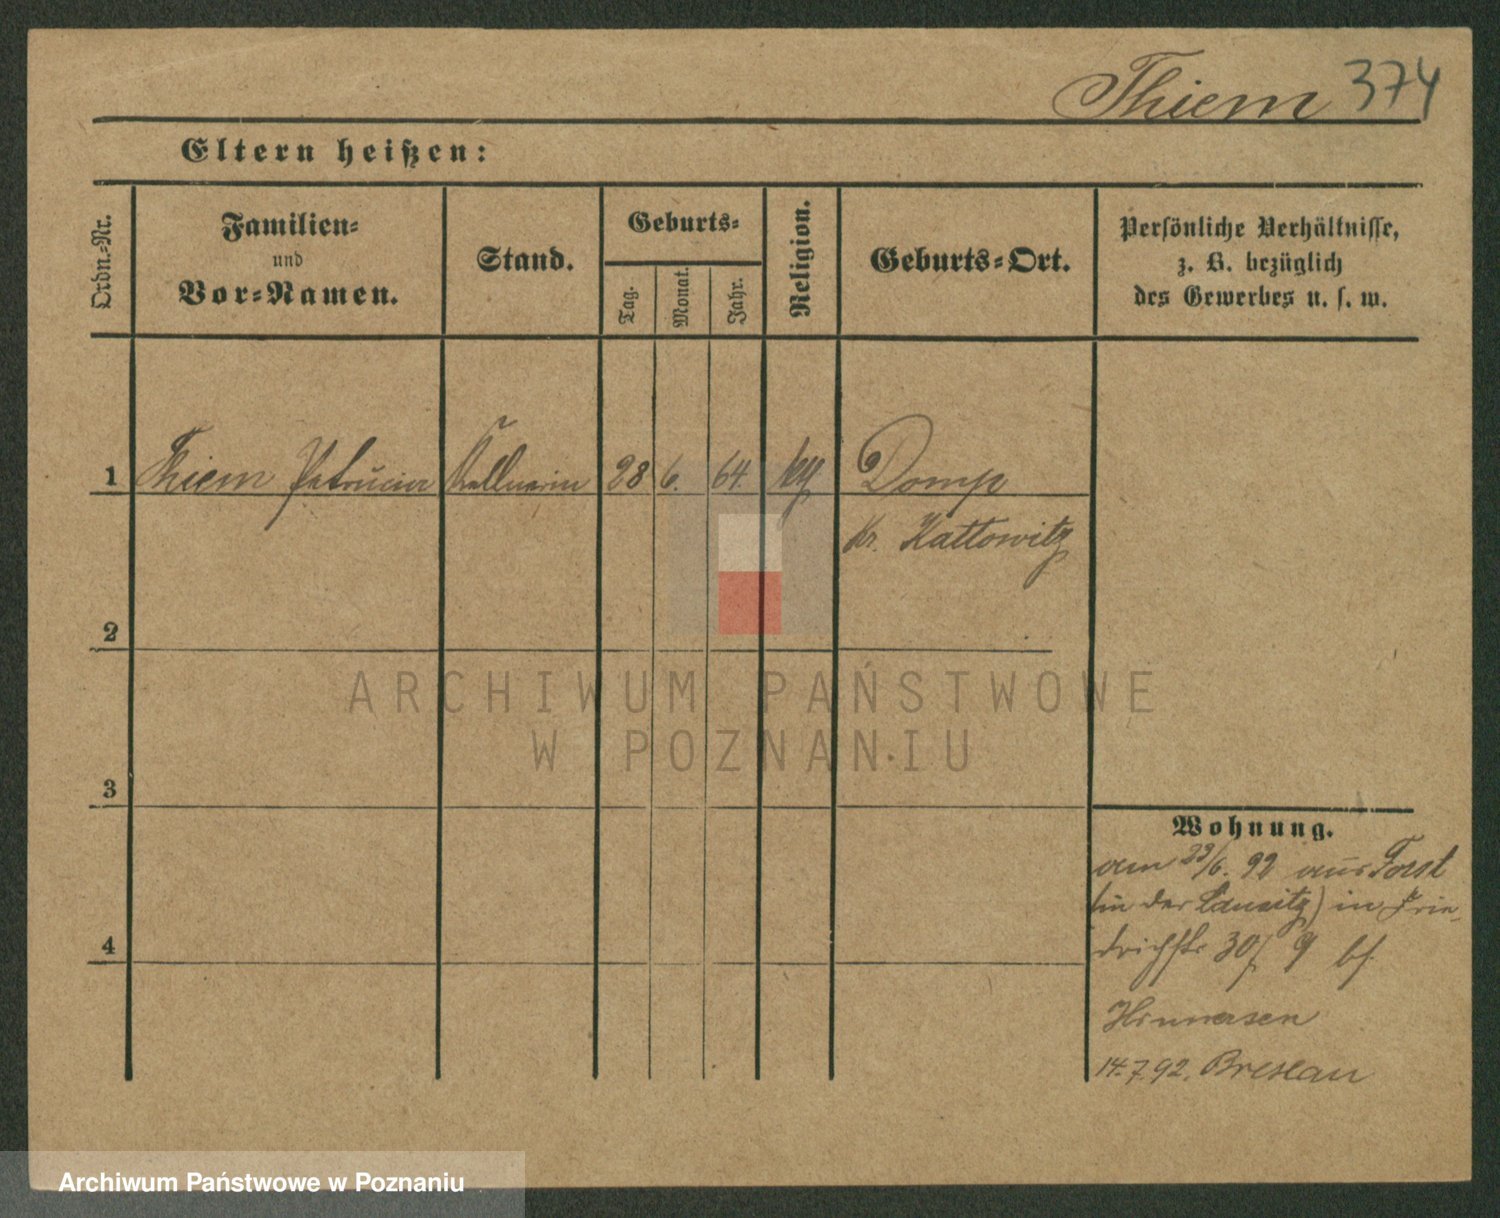 Thiem 374
Eltern heißen:
Ordn.-Nr.
Familien-
und
Vor-Namen.
Stand.
Geburts-
Tag.
Monat.
Jahr.
Religion.
Geburts-Ort.
Persönliche Verhältnisse,
z. B. bezüglich
des Gewerbes u. s. w.
1 Thiem Kellnerin 28 6. 64. Domp
Kr. Kattowitz
2
3
4
Wohnung.
am 23/6. 92 aus Forst
(in der Lausitz) in Frie-
drichstr 30/ 9 bf.
14.7.92. Breslau
ARCHIWUM PAŃSTWOWE
W POZNANIU
Archiwum Państwowe w Poznaniu